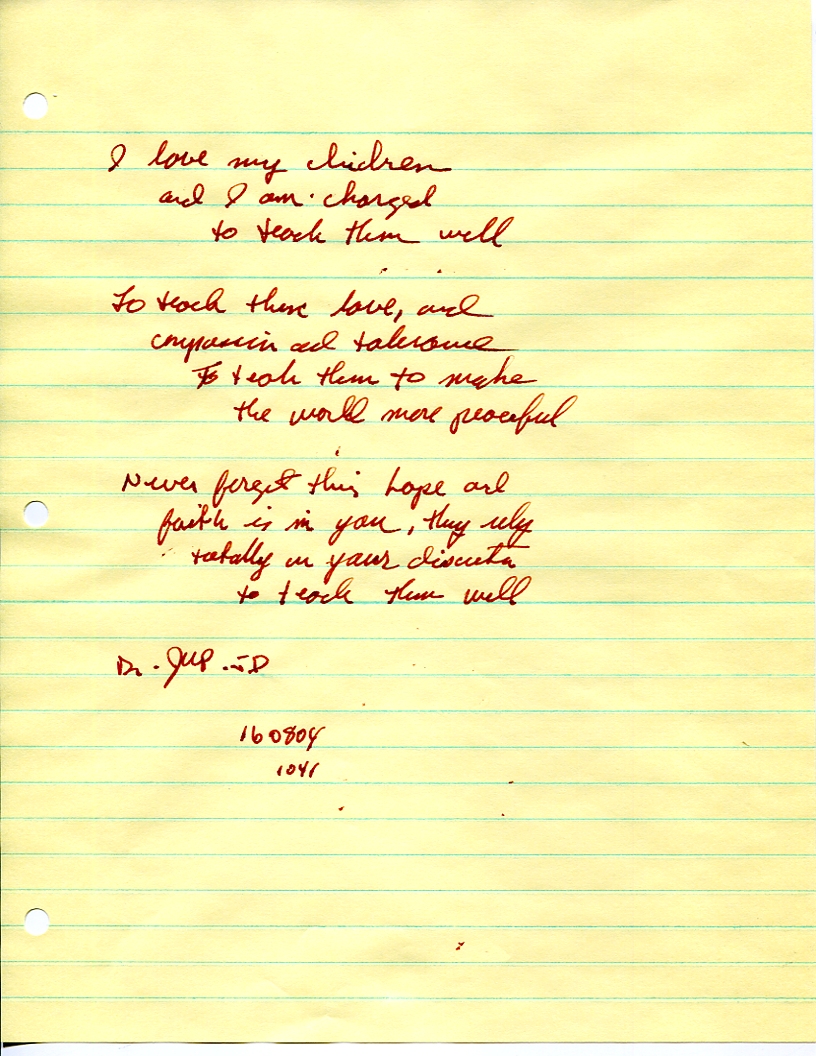 I love my children
and I am charged
to teach them well
To teach them love, and
compassion and tolerance
To teach them to make
the world more peaceful
Never forget this, hope and
faith is in you, they rely
totally on your
to teach them well
Dr.
160804
1041